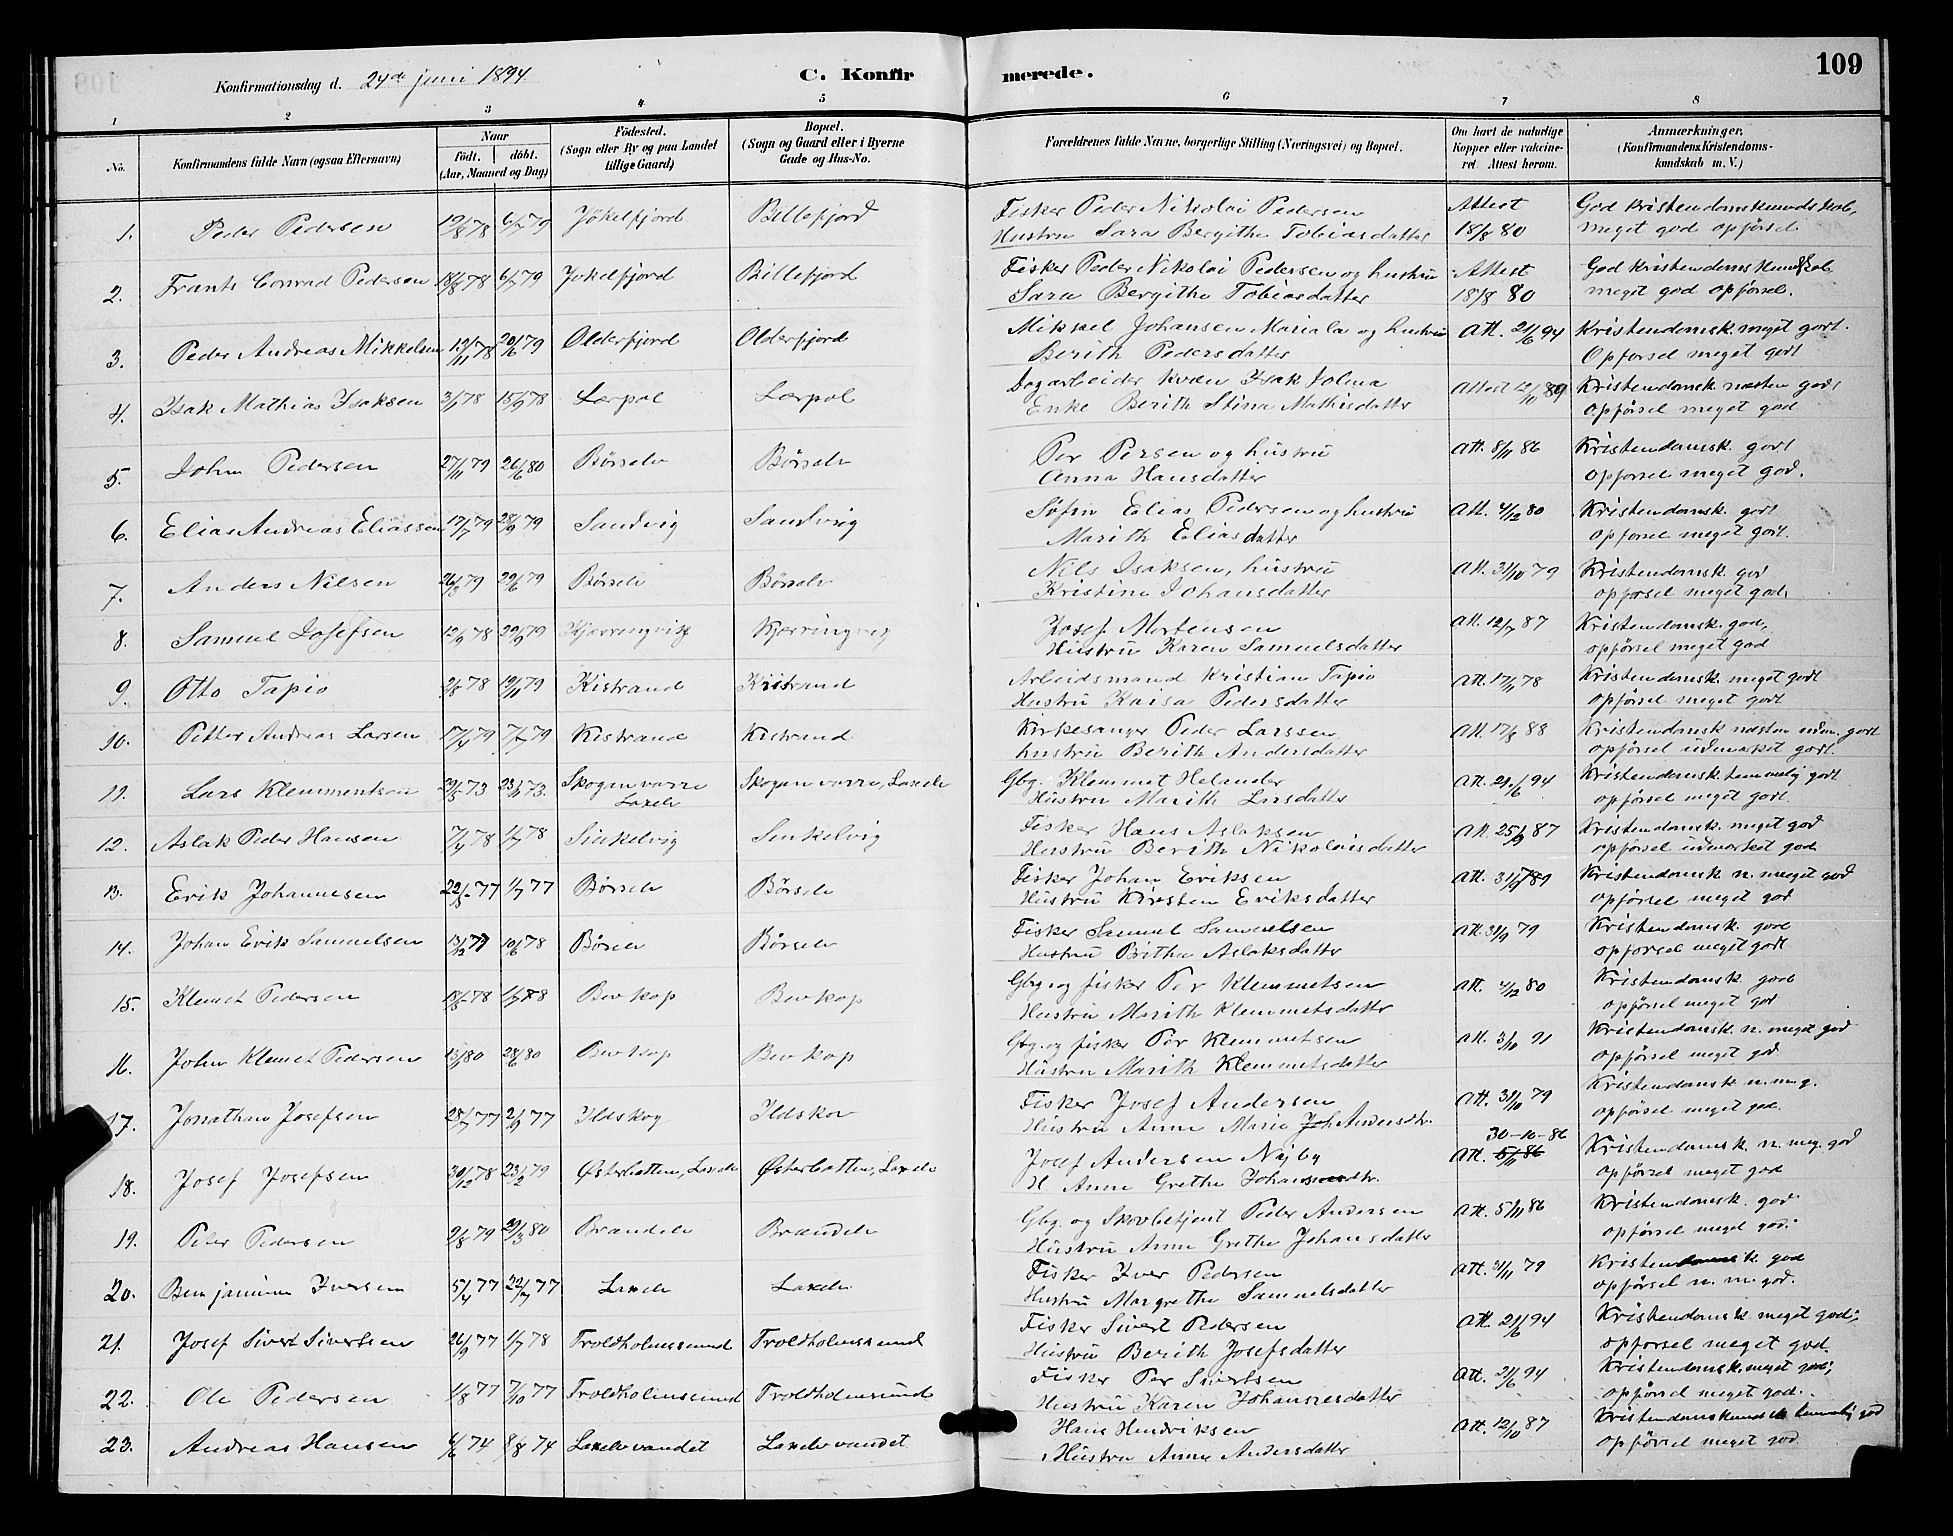 Konfirmationsdag d. 24de juni 1894
C. Konfirmerede.
109
1 2 3 4 5 6 7 8
No. Konfirmandens fulde Navn (ogsaa Efternavn) Naar födt. döbt. (Aar, Maaned og Dag) Födested. (Sogn eller By og paa Landet tillige Gaard) Bopæl. (Sogn og Gaard eller i Byerne Gade og Hus-No. Forældrenes fulde Navne, borgerlige Stilling (Næringsvei) og Bopæl. Om havt de naturlige Kopper eller vakcineret. Attest herom. Anmærkninger, (Konfirmandens Kristendomskundskab m. V.)
1. Peder Pedersen 12/8 78 6/7 79 Jökelfjord Billefjord Fisker Peder Nikolai Pedersen Attest God kristendomskundskab,
Hustru Sara Bergithe Tobiasdatter 18/8 80 meget god opförsel.
2. Frants Conrad Pedersen 18/8 78 6/7 79 Jökelfjord Billefjord Fisker Peder Nikolai Pedersen og hustru Attest God kristendomskundskab
Sara Bergithe Tobiasdatter 18/8 80 meget god opförsel.
3. Peder Andreas Mikkelsen 12/11 78 20/6 79 Olderfjord Olderfjord Mikkel Johansen og hustru Att. 21/6 94 Kristendomsk. meget godt.
Berith Pedersdatter Opförsel meget godt
4. Isak Mathias Isaksen 3/7 78 15/9 78 Lærpol Lærpol Dagarbeider kvæn Isak Jolma Attest 12/11 89 Kristendomsk næsten godt
Enke Berith Stina Mathisdatter opförsel meget god
5. John Pedersen 27/11 79 26/6 80 Börselv Börselv Per Persen og hustru Att. 8/11 86 Kristendomsk. godt
Anna Hansdatter opförsel meget god.
6. Elias Andreas Eliassen 17/7 79 28/9 79 Sandvig Sandvig Söfin Elias Pedersen og hustru Att. 4/12 80 Kristendomsk. godt
Marith Eliasdatter opförsel meget godt.
7. Anders Nilsen 26/3 79 29/6 79 Börselv Börselv Nils Isaksen, hustru Att. 31/10 79 Kristendomsk. god
Kristine Johansdatter opförsel meget god,
8. Samuel Josefsen 12/9 78 29/9 79 Kjærringvig Kjærringvig Josef Mortensen Att. 12/7 87 Kristendomsk. god,
Hustru Karen Samuelsdatter opförsel meget god
9. Otto Tapio 2/8 78 19/11 79 Kistrand Kistrand Arbeidsmand Kristian Tapio Att. 17/11 78 Kristendomsk. meget godt
Hustru Kaisa Pedersdatter opförsel meget godt
10. Petter Andreas Larsen 17/4 79 7/7 79 Kistrand Kistrand Kirkesanger Peder Larssen Att. 17/8 88 Kristendomsk næsten udm. godt
hustru Berith Andersdatter opförsel udmærket godt.
11. Lars Klemmentsen 29/5 73 23/11 73. Skoganvarre Laxelv Skoganvarre, Laxelv Gbg. Klemmet Helander Att. 21/6 94 Kristendomsk. temmelig godt
Hustru Marith Larsdatter opförsel meget godt.
12. Aslak Peder Hansen 7/4 78 1/7 78 Sinkelvig Sinkelvig Fisker Hans Aslaksen Att. 25/9 87 Kristendomsk. meget god
Hustru Berith Nikolaisdatter opförsel udmærket god
13. Erik Johannesen 22/3 77 1/7 77 Börselv Börselv Fisker Johan Eriksen Kristendomsk n. meget god
Hustru Kirsten Eriksdatter opförsel meget god
14. Johan Erik Samuelsen 13/12 77 10/6 78 Börselv Börselv Fisker Samuel Samuelsen Kristendomsk. god
Hustru Britha Aslaksdatter opförsel meget godt
15. Klemet Pedersen 18/5 78 1/7 78 Bevkop Bevkop Gbg. og fisker Per Klemmetsen Att. 4/12 80 Kristendomsk. god
Hustru Marith Klemmetsdatter opförsel meget god
16. John Klemet Pedersen 28/6 80 Bevkop Bevkop Gbg. og fisker Per Klemmetsen Att. 3/11 91 Kristendomsk. n. meget god
Hustru Marith Klemmetsdatter opförsel meget god
17. Jonathan Josefsen 28/7 77 2/9 77 Ildskog Ildskov Fisker Josef Andersen Att. 31/10 79 Kristendomsk. n. m. g.
Hustru Anne Marie Joh Andersdtr. opförsel meget god.
30-10-86
18. Josef Josefsen 30/12 78 23/2 79 Østerbotten, Laxelv Østerbotten, Laxelv Josef Andersen Nyby Att. 5/11 86 Kristendomsk. n. meg. god
H Anne Grethe Johannesdtr. opförsel meget god
19. Peter Pedersen 2/8 79 29/3 80 Brandelv Brandelv Gbg. og Skovbetjent Peder Andersen Att. 5/11 86 Kristendomsk. god
Hustru Anne Grethe Johansdatter opförsel meget god.
20. Benjamin Iversen 5/4 77 22/7 77 Laxelv Laxelv Fisker Iver Pedersen Att. 31/11 79 Kristendomsk. god
Hustru Margrethe Samuelsdatter opförsel n. m. god.
21. Josef Sivert Sivertsen 26/9 77 1/7 78 Troldholmssund Troldholmssund Fisker Sivert Pedersen Att. 21/6 94 Kristendomsk meget god;
Hustru Berith Josefsdatter opförsel meget god.
22. Ole Pedersen 1/8 77 7/10 77 Troldholmssund Troldholmsund Fisker Per Sivertsen Att. 21/6 94 Kristendomsk. meget god;
Hustru Karen Johannesdatter opförsel meget god.
23. Andreas Hansen 6/6 74 8/8 74 Laxelvvandet Laxelvvandet Hans Hendriksen Att. 12/10 87 Kristendomskundsk temmelig god
Hustru Anne Andersdatter opförsel meget god